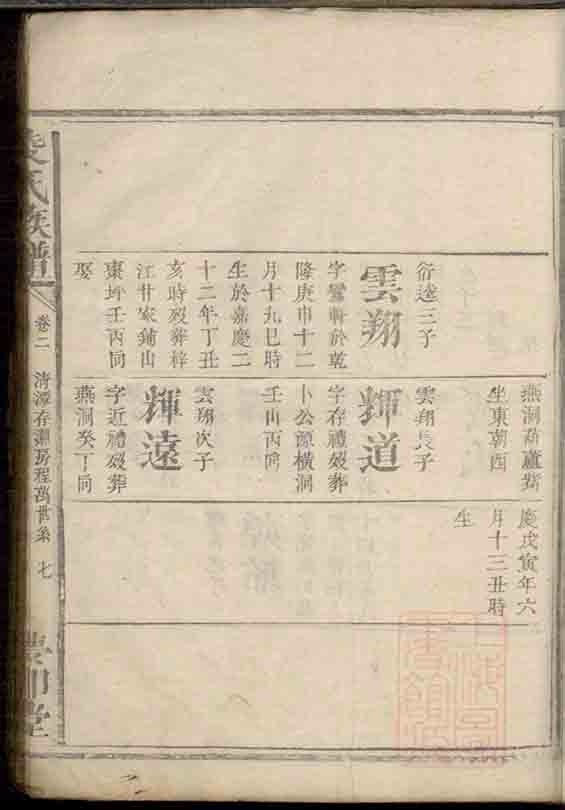 衍達三子
雲翔
字鸞軒於乾
隆庚申十二
月十九巳時
生於嘉慶二
十二年丁丑
亥時歿葬梓
江甘家鋪山
棗坪壬丙同
娶
燕洞葫蘆
坐東朝酉
雲翔長子
輝道
字存禮歿葬
卜公源橫洞
壬山丙向
雲翔次子
輝遠
字近禮歿葬
燕洞癸丁同
慶戊寅年六
月十三丑時
生
氏族譜
卷二
清潭存房程萬世系
七
堂
上海圖書館藏